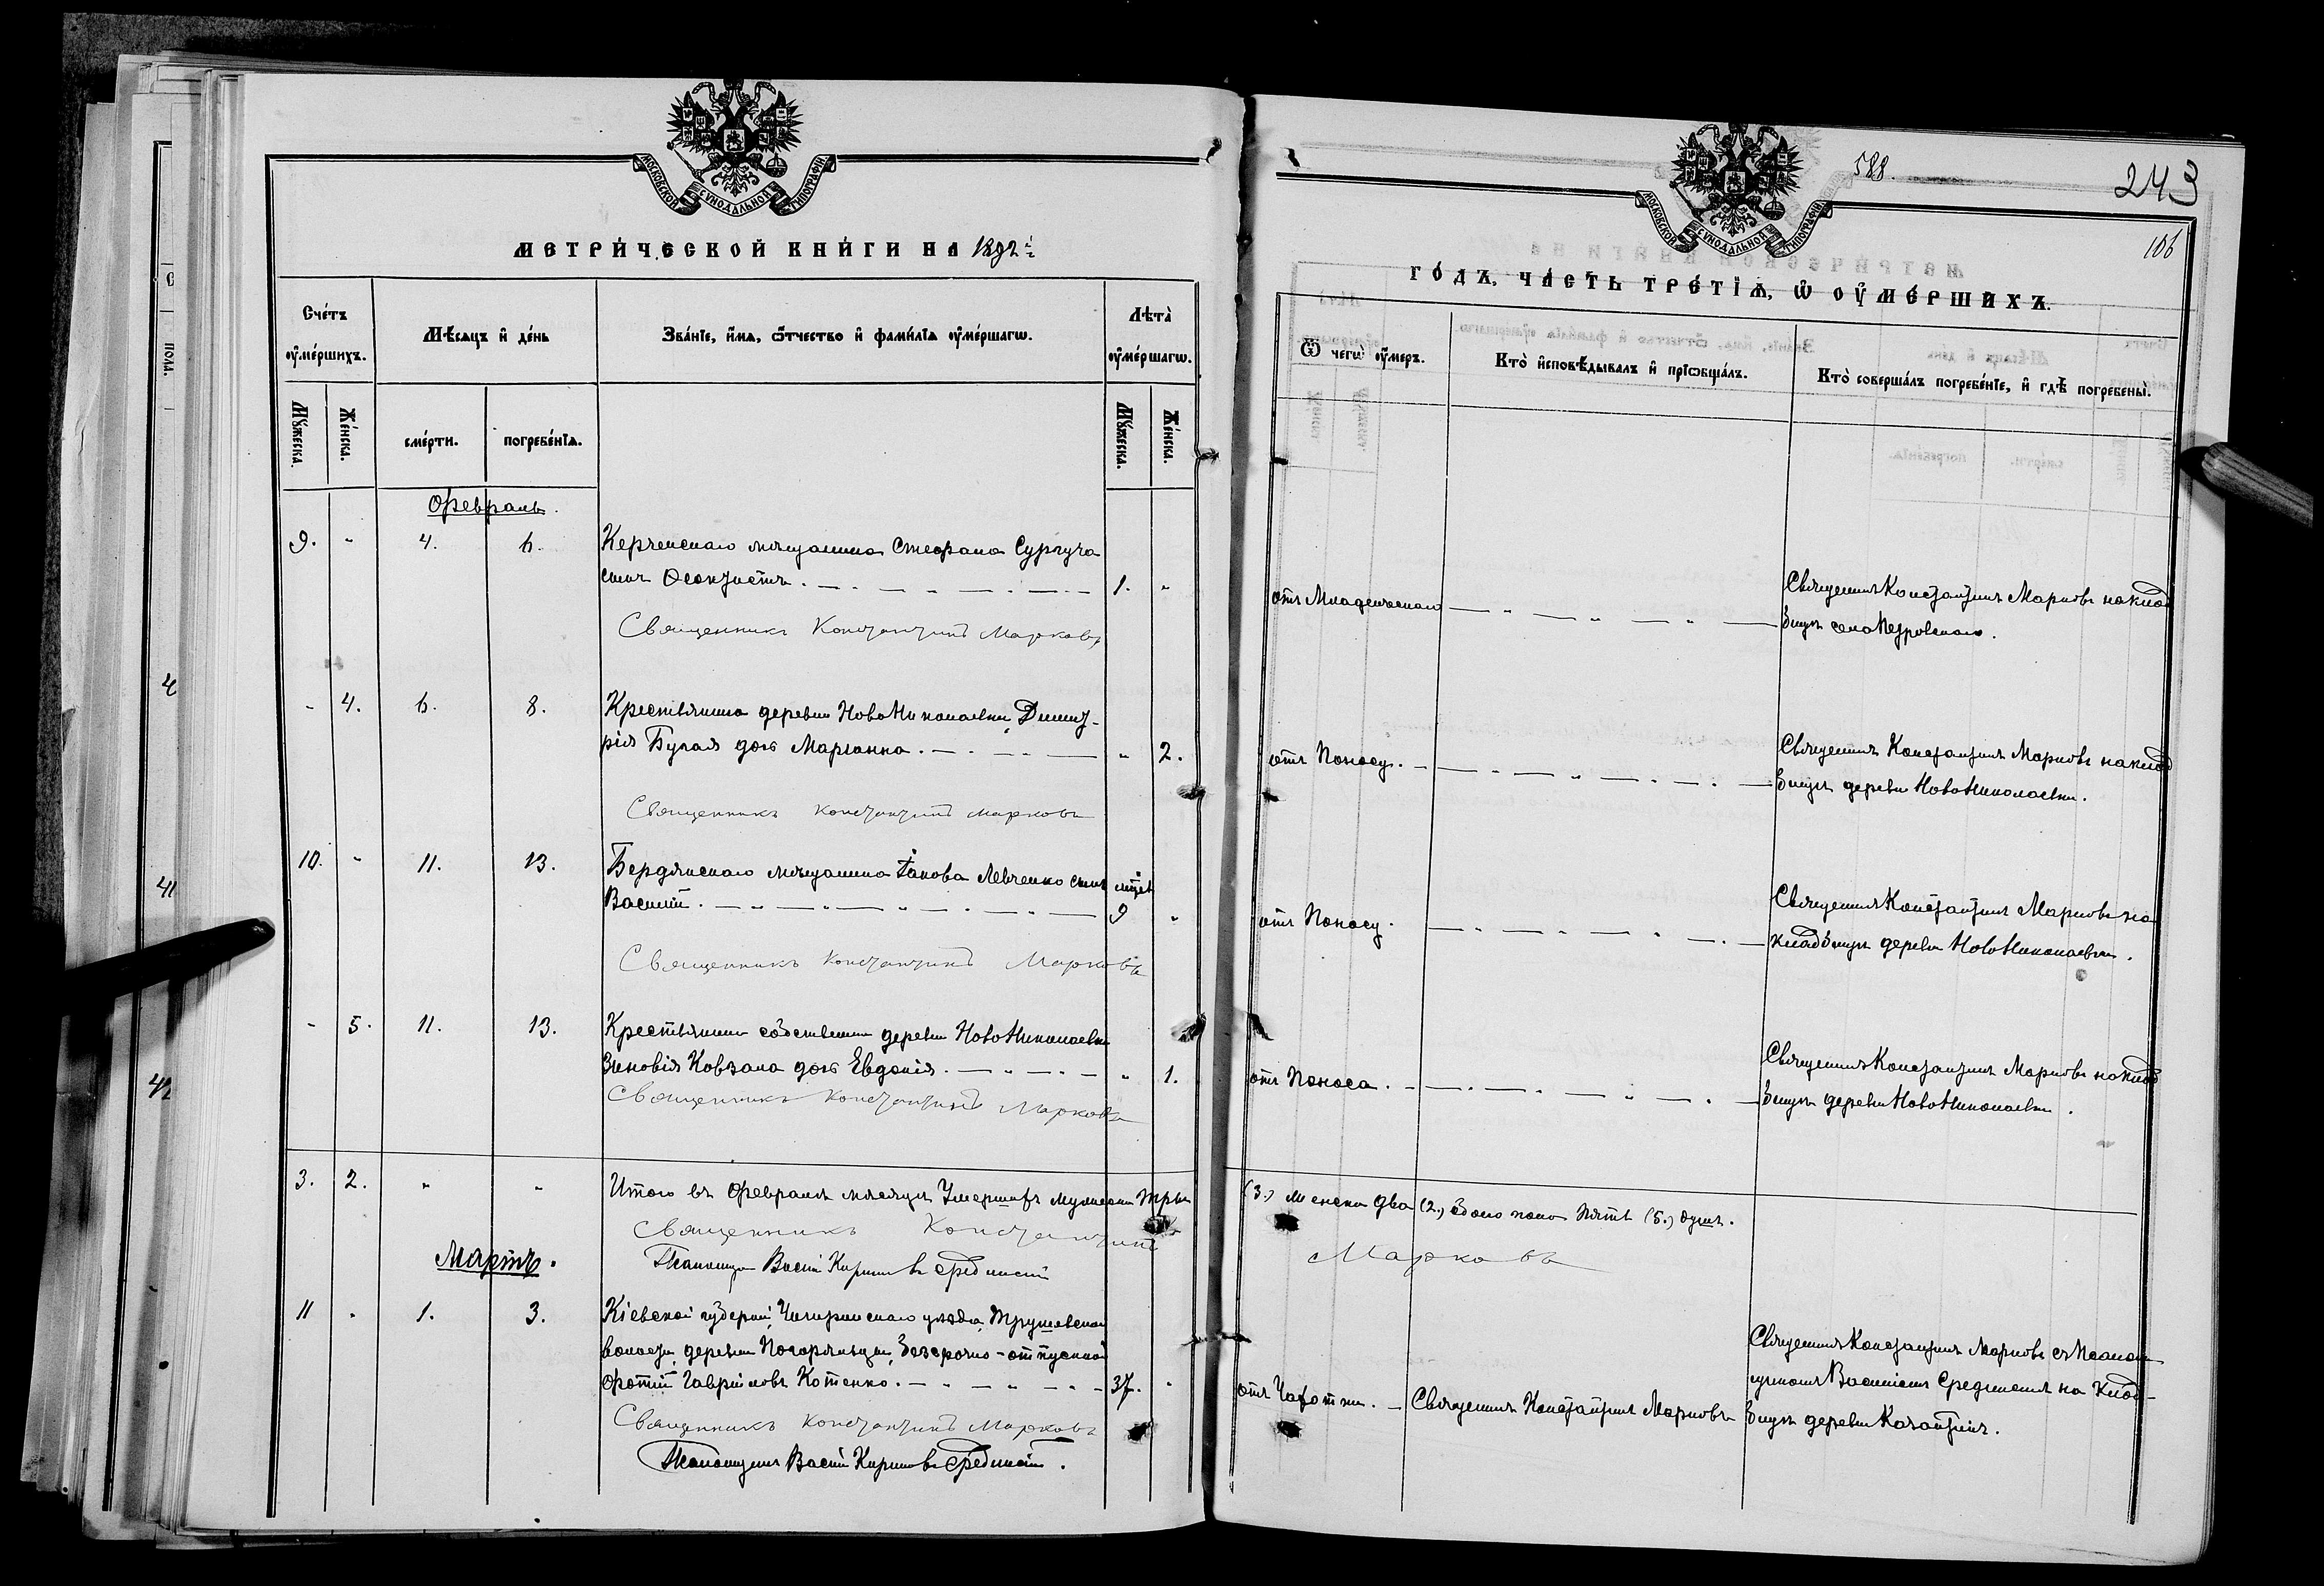 МОСКОВСКОЙ СѴНОДАЛЬНОЙ ТИПОГРАФІИ
МЕТРИ́ЧЕСКОЙ КНИ́ГИ НА 1892 г.
Сче́тъ ᲂу҆ме́ршихъ.
Мѣ́сяцъ и҆ де́нь
Зва́нїе, и҆́мѧ, ѻ҆́тчество и҆ фами́лїѧ ᲂу҆ме́ршагѡ.
Лѣ́та ᲂу҆ме́ршагѡ.
Мꙋ́жеска.
Же́нска.
сме́рти.
погребе́нїѧ.
Мꙋ́жеска.
Же́нска.
Февраль.
9. " 4. 6. Керченскаго мѣщанина Стефана Сургуча
сынъ Ѳеоктистъ. 1. "
Священникъ Константинъ Марковъ
- 4. 6. 8. Крестьянина деревни НовоНиколаевки, Димит-
рія Бугая дочь Маріанна. " 2.
Священникъ Константинъ Марковъ
10. " 11. 13. Бердянскаго мѣщанина Іакова Левченко сынъ
Василій. 9 "
Священникъ Константинъ Марковъ
- 5. 11. 13. Крестьянина собственника деревни НовоНиколаевки
Зиновія Ковзала дочь Евдокія. " 1.
Священникъ Константинъ Марковъ
3. 2. " " Итого въ Февралѣ мѣсяцѣ Умершихъ мужеска три
Священникъ Константинъ
Псаломщикъ Василій Средински
Мартъ.
11 " 1. 3. Кіевской губерніи, Чигиринскаго уѣзда, Трушевской
волости, деревни Погорѣльцы, безсрочно-отпускной
Фотій Гавріиловъ Котенко. 37. "
Священникъ Константинъ Марковъ
Псаломщикъ Василій Срединскій.
МОСКОВСКОЙ СѴНОДАЛЬНОЙ ТИПОГРАФІИ
588.
243
106
ГО́ДЪ, ЧА́СТЬ ТРЕ́ТЇѦ, Ѡ҆ ОУ҆МЕ́РШИХЪ.
Ѿ чегѡ̀ ᲂу҆́меръ.
Кто̀ и҆сповѣ́дывалъ и҆ прїѡбща́лъ.
Кто̀ соверша́лъ погребе́нїе, и҆ гдѣ̀ погребены̀.
отъ Младенческаго
Священникъ Константинъ Марковъ на клад
бищѣ села Петровскаго.
отъ Поносу.
Священникъ Константинъ Марковъ на клад
бищѣ деревни НовоНиколаевки.
отъ Поносу.
Священникъ Константинъ Марковъ на
кладбищѣ деревни НовоНиколаевки.
отъ Поноса.
Священникъ Константинъ Марковъ на клад
бищѣ деревни НовоНиколаевки.
(3.) женска два (2.) обоего пола Пять (5.) душъ.
Марковъ
отъ Чахотки. Священникъ Константинъ Марковъ
Священникъ Константинъ Марковъ съ Псалом
щикомъ Василіемъ Срединскимъ на Клад-
бищѣ деревни Казантипъ.